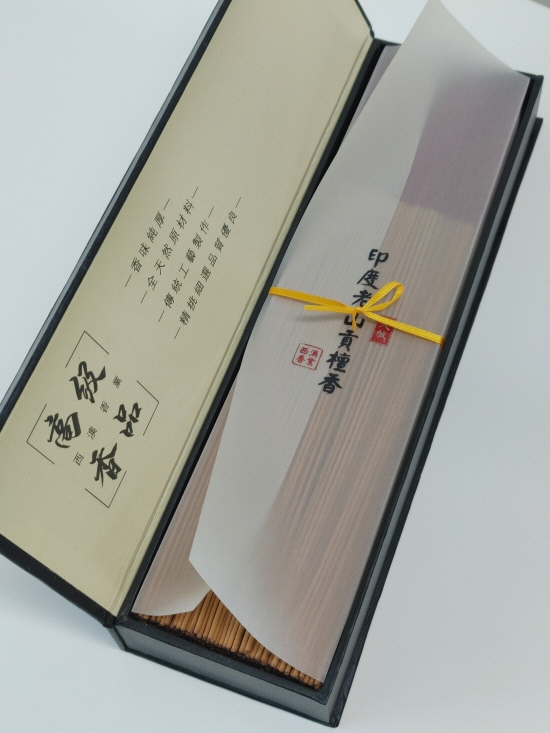 香味純厚
全天然原材料
傳統工藝製作
精挑細選品質優良
高級
香品
西漢香業
印度老山貢檀香